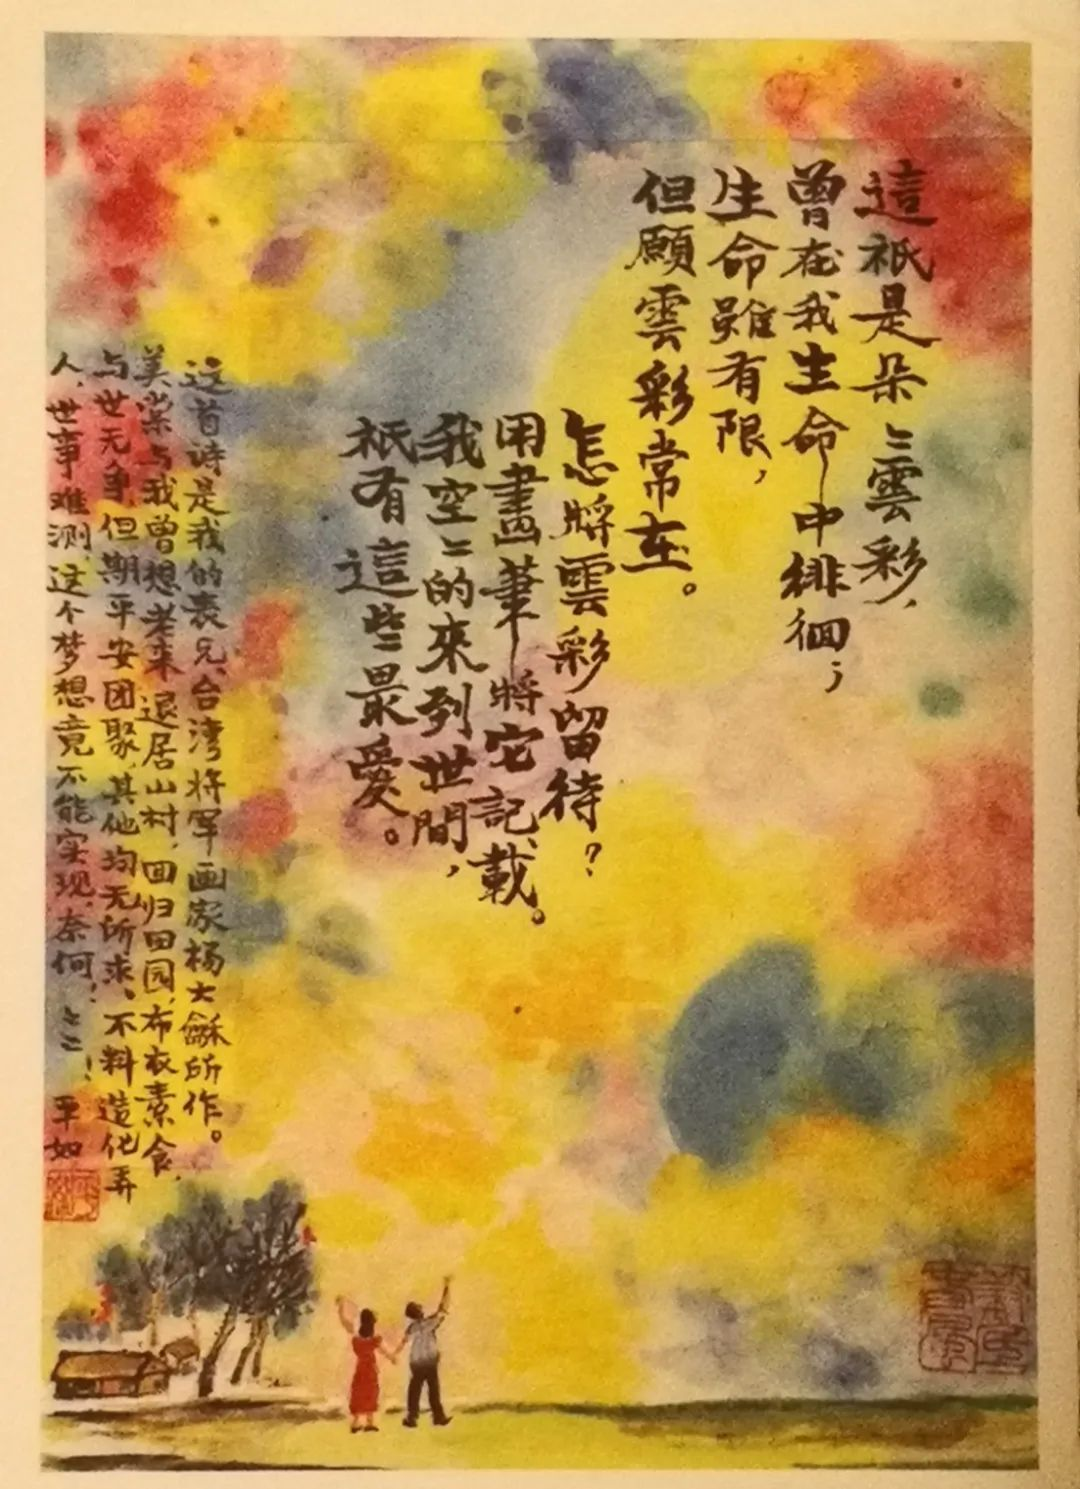 這祇是朵〻雲彩，
曾在我生命中緋徊；
生命雖有限，
但願雲彩常在。
怎將雲彩留待？
用畫筆將它記載。
我空〻的來到世間，
祇有這些最愛。
这首诗是我的表兄、台湾将军画家杨大龢所作。
美棠与我曾想老来退居山村，回归田园，布衣素食，
与世无争，但期平安团聚，其他均无所求、不料造化弄
人，世事难测，这个梦想竟不能实现，奈何！〻〻！平如